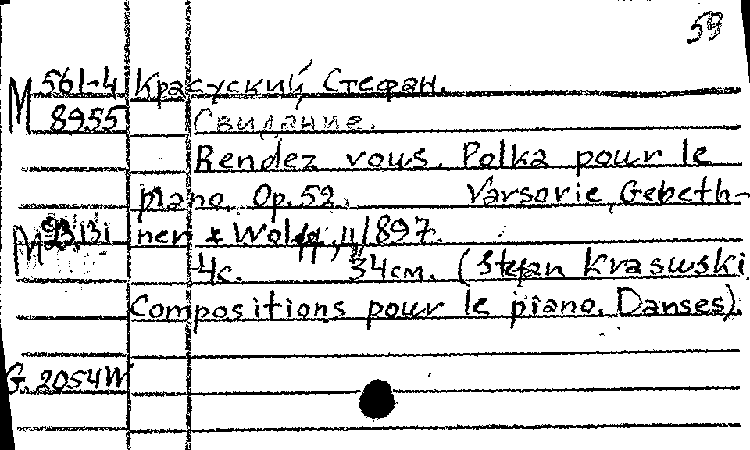 59
М 561-4 Красуский Стефан.
8955 Свидание.
Rendez vous. Polka pour le
piano. Op. 52. Varsovie, Gebeth-
ner & Wolff, 1897.
М 93.131
4с. 34см. (Stefan Krasuski
Compositions pour le piano. Danses).
G. 2054 W